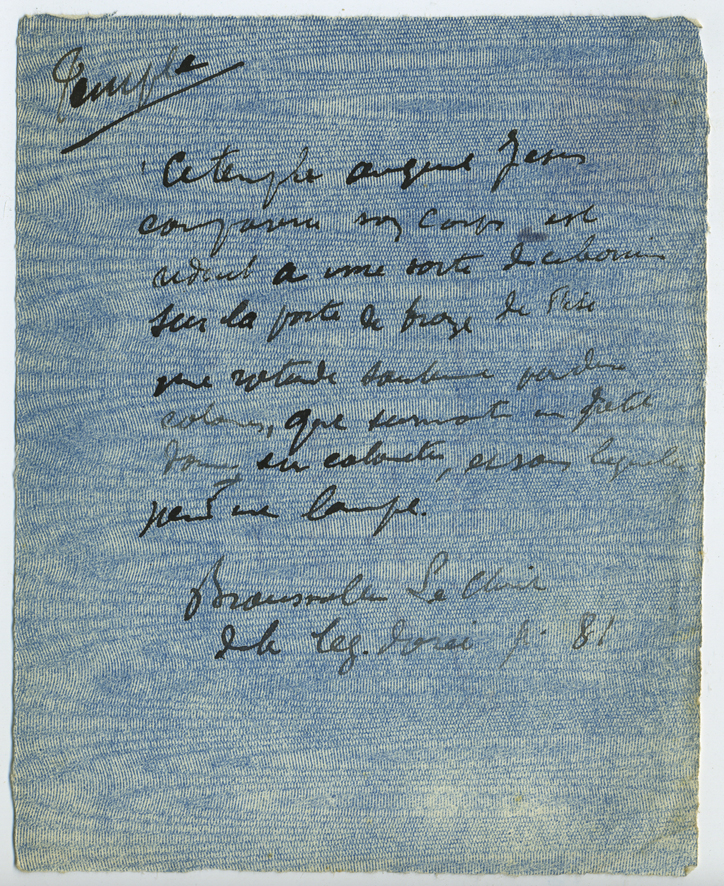 Temple
Ce temple auquel Jésus
compare son corps est
réduit à une sorte de ciborium
sur la porte de bronze de Pise
une rotonde soutenue par deux
colonnes, que surmonte un petit
dome, sur colonettes, et sous laquelle
pend une lampe.
Broussolle Le Christ
de la leg. dorée p. 81